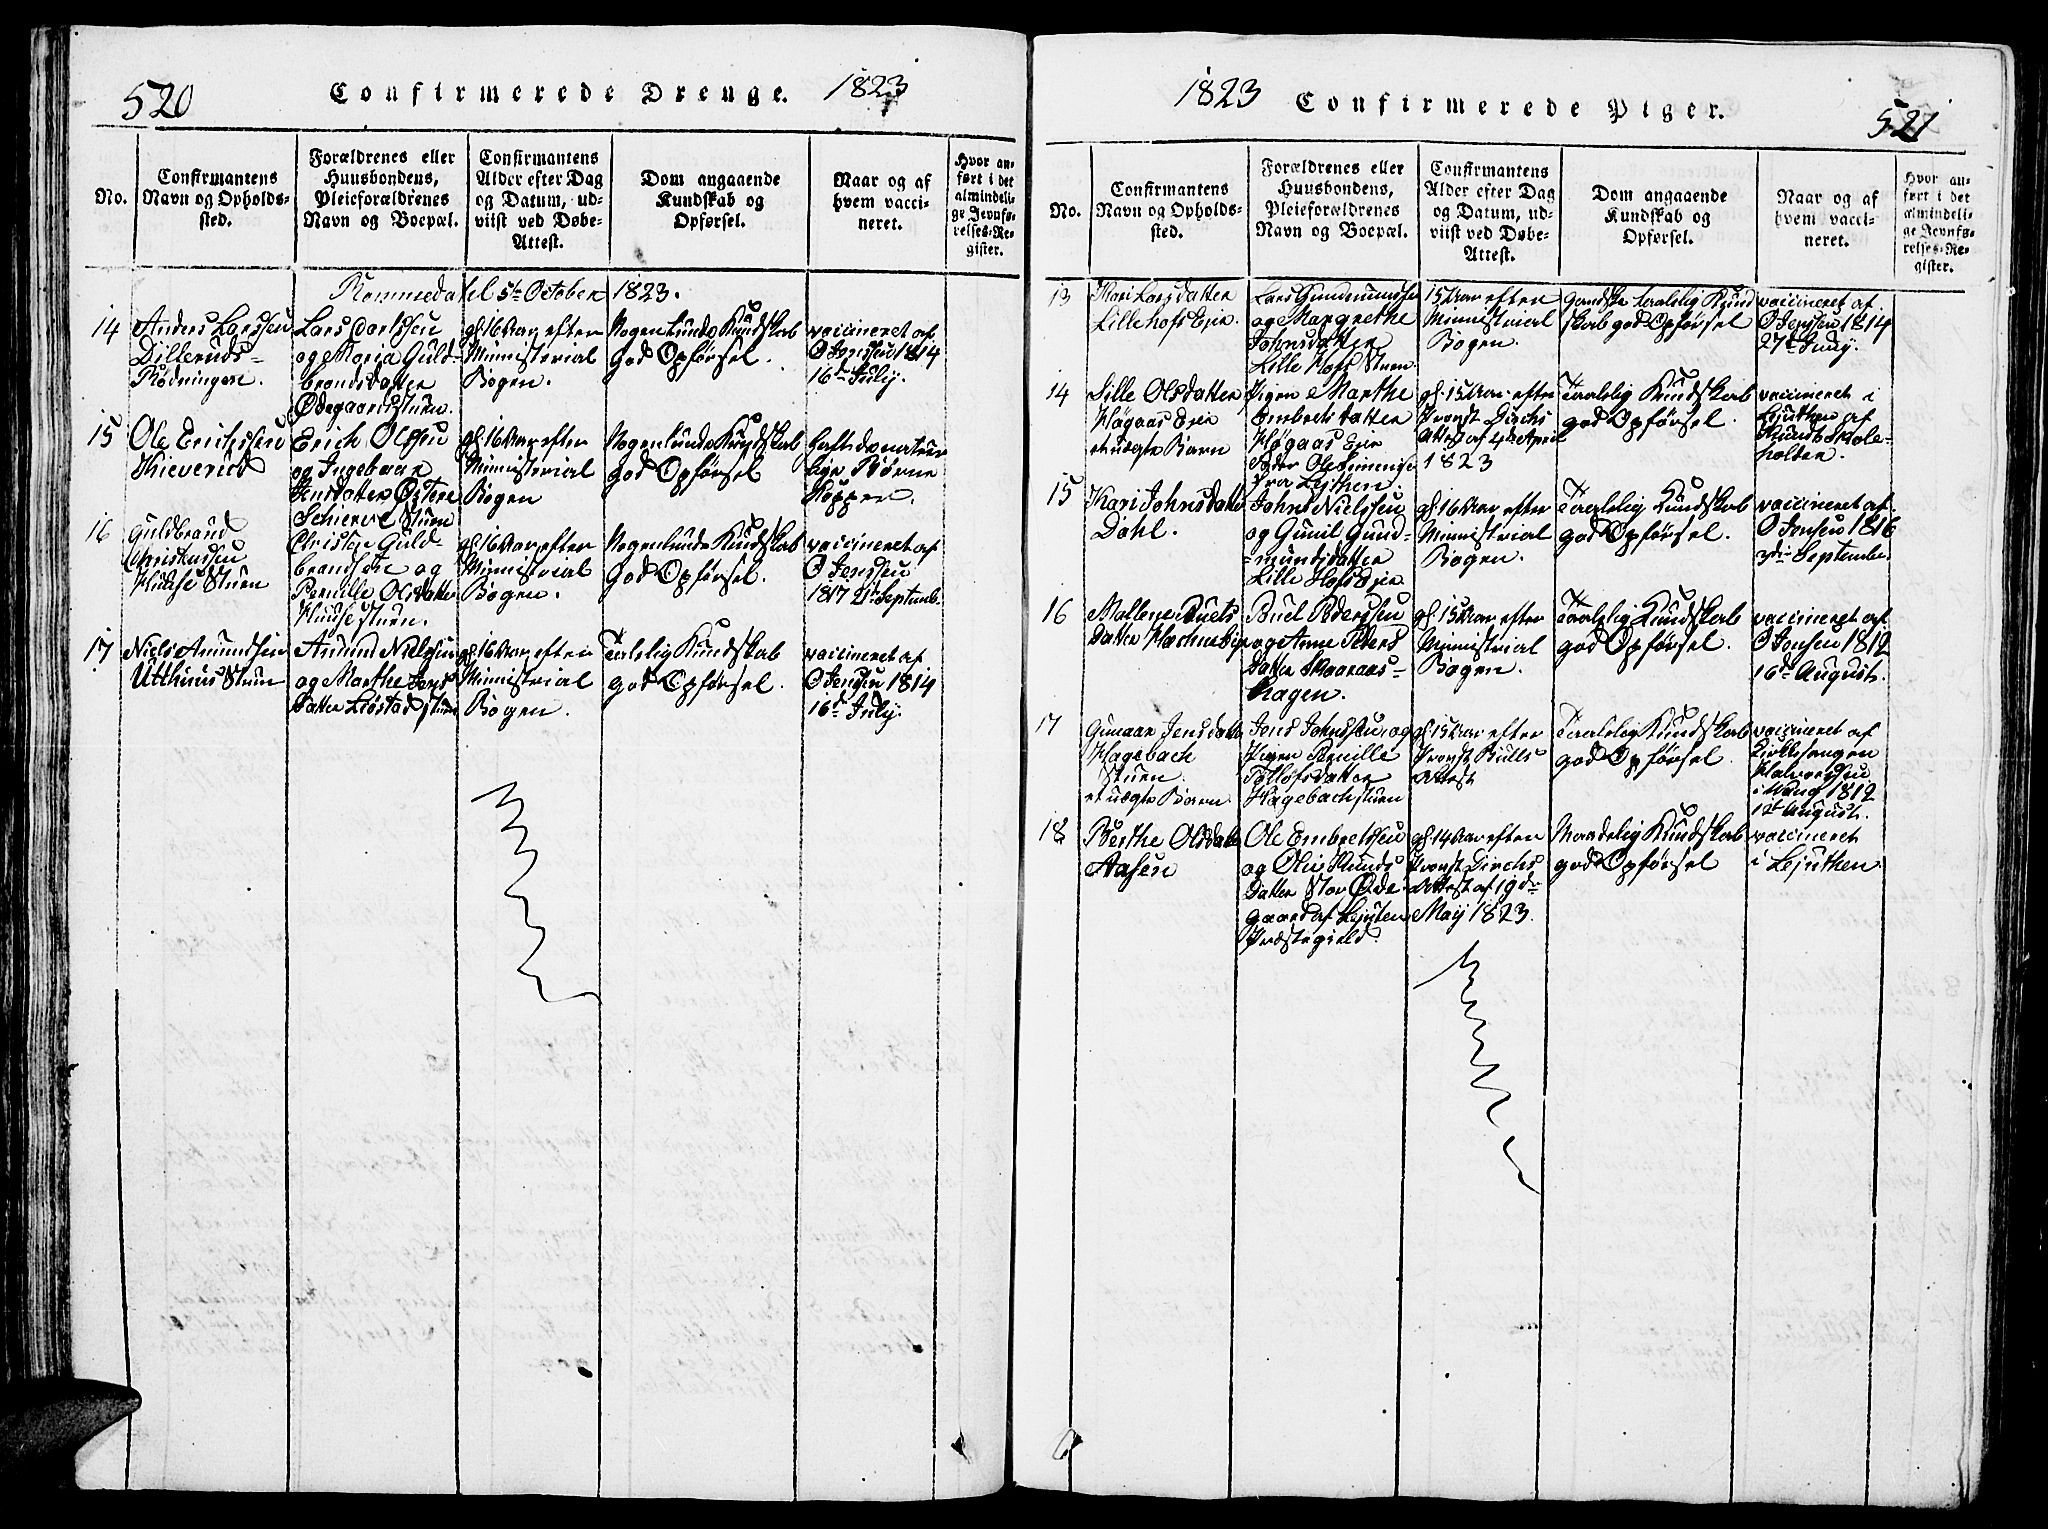 520 Confirmerede Drenge. 1823
No.
Confirmantens
Navn og Opholds-
sted.
Forældrenes eller
Huusbondens,
Pleieforældrenes
Navn og Boepæl.
Confirmantens
Alder efter Dag
og Datum, ud-
viist ved Døbe-
Attest.
Dom angaaende
Kundskab og
Opførsel.
Naar og af
hvem vacci-
neret.
Hvor an-
ført i det
almindeli-
ge Jevnfø-
relses-Re-
gister.
Rommedahl 5te October 1823.
14
Anders Larssen
Dilleruds-
Rødningen.
Lars Carlssen
og Maria Guld-
brandsdatter
Ødegaardsstuen.
gl. 16 Aar efter
Ministerial
Bogen.
Nogenlunde Kundskab
god Opførsel.
vaccineret af
O Jenssen 1814
16de July.
15
Ole Erichssen
Kieverud
Erich Olssen
og Ingeboer
Jensdatter Østere
Schierve Stuen
gl. 16 Aar efter
Ministerial
Bogen
Nogenlunde Kundskab
god Opførsel
haft de natur
lige Børne
Kopper.
16
Guldbrand
Christenssen
Huuse Stuen
Christen Guld-
brandsen og
Pernille Olsdatter
Huusestuen.
gl. 16 Aar efter
Ministerial
Bogen.
Nogenlunde Kundskab
god Opførsel.
vaccineret af
O Jenssen
1817 21de Septemb.
17
Niels Amundsen
Utthuus Stuen
Amund Nielssen
og Marthe Jens
Datter Liøstad stuen
gl. 16 Aar efter
Ministerial
Bogen.
Taalelig Kundskab
god Opførsel.
vaccineret af
O Jensen 1814
16de July.
1823 Confirmerede Piger. 521
No.
Confirmantens
Navn og Opholds-
sted.
Forældrenes eller
Huusbondens,
Pleieforældrenes
Navn og Boepæl.
Confirmantens
Alder efter Dag
og Datum, ud-
viist ved Døbe-
Attest.
Dom angaaende
Kundskab og
Opførsel.
Naar og af
hvem vacci-
neret.
Hvor an-
ført i det
almindeli-
ge Jevnfø-
relses-Re-
gister.
13
Mari Larsdatter
Lillehofs Eje.
Lars Gundmundsen
og Margrethe
Johnsdatter
Lille Hofs Stuen.
15 Aar efter
Ministerial
Bogen.
gandske taalelig Kund
skab god Opførsel
vaccineret af
O Jenssen 1814
27de Juny.
14
Sille Olsdatter
Høgaas Eje
et uægte Barn
Pigen Marthe
Embretsdatter
Høgaas Eje
Fader Ole
fra Lejthen.
gl. 15 Aar efter
Provst Dirchs
Attest af 4de April
1823
Taalelig Kundskab
god Opførsel.
vaccineret i
Lejuthen af
Knud Skole-
holder.
15
Kari Johnsdatter
Dahl.
John Nielssen
og Gunil Gund-
mundsdatter
Lille Hofs Eje
gl. 16 Aar efter
Ministerial
Bogen.
Taalelig Kundskab
god Opførsel.
vaccineret af
O Jensen 1816
3die September
16
Mallene Buels
Datter
Buel Pedersen
og Anne Peders
Datter Skaaraas-
hagen.
gl. 15 Aar efter
Ministerial
Bogen.
Taalelig Kundskab
god Opførsel.
vaccineret af
O Jonsen 1812
16de August.
17
Gunnar Jensdatter
Hagebach
Stuen.
et uægte Barn.
Jens Johnssen, og
Pigen Pernille
Tollofsdatter
Hagebachstuen
gl. 15 Aar efter
Provst Bulls
Attest
Taalelig Kundskab
god Opførsel.
vaccineret af
Kirkesangen
Halvorssen
i Wang 1812
12t August.
18
Berthe Olsdatter
Aasen
Ole Embretssen
og Olia Knuds
Datter Stor Øde
gaard af Lejuten
Præstegield.
gl. 14 Aar efter
Provst Dirchs
Attest af 19de
Maij 1823.
Maadelig Kundskab
god Opførsel
vaccineret
i Lejuthen.